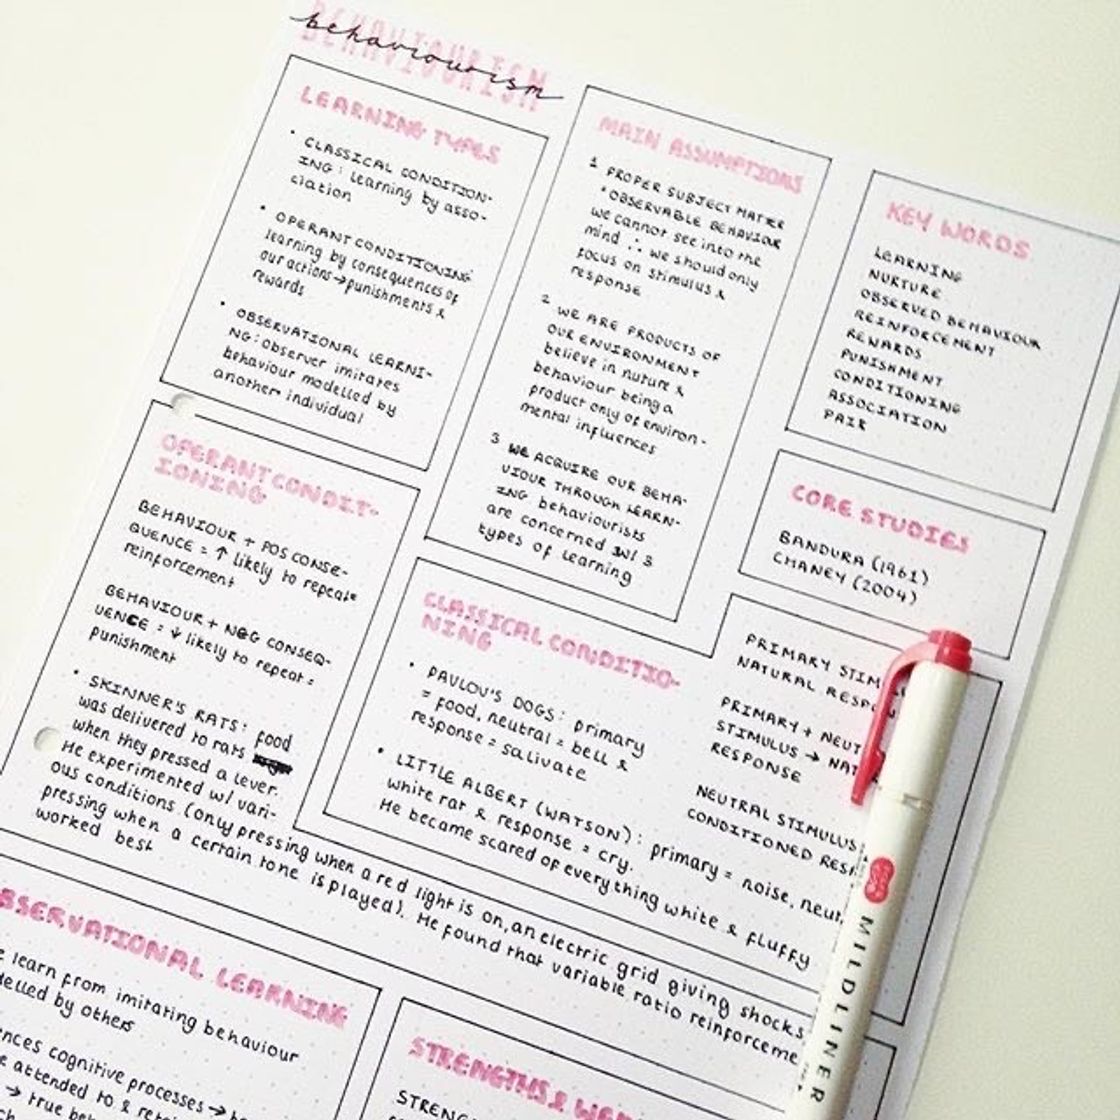 BEHAVIOURISM
behaviourism
LEARNING TYPES
• CLASSICAL CONDITION-
ING: learning by asso-
ciation
• OPERANT CONDITIONING
learning by consequences of
our actions → punishments &
rewards
• OBSERVATIONAL LEARNI-
NG: observer imitates
behaviour modelled by
another individual
MAIN ASSUMPTIONS
1 PROPER SUBJECT MATTER
* OBSERVABLE BEHAVIOUR
we cannot see into the
mind ∴ we should only
focus on stimulus &
response
2 WE ARE PRODUCTS OF
OUR ENVIRONMENT
believe in nurture &
behaviour being a
product only of environ-
mental influences
3 WE ACQUIRE OUR BEHA-
VIOUR THROUGH LEARN-
ING behaviourists
are concerned w/ 3
types of learning
KEY WORDS
LEARNING
NURTURE
OBSERVED BEHAVIOUR
REINFORCEMENT
REWARDS
PUNISHMENT
CONDITIONING
ASSOCIATION
PAIR
CORE STUDIES
BANDURA (1961)
CHANEY (2004)
OPERANT CONDIT-
IONING
BEHAVIOUR + POS CONSE-
QUENCE = ↑ likely to repeat =
reinforcement
BEHAVIOUR + NEG CONSEQ-
UENCE = ↓ likely to repeat =
punishment
• SKINNER'S RATS: food
was delivered to rats
when they pressed a lever.
He experimented w/ vari-
ous conditions (only pressing when a red light is on, an electric grid giving shocks,
pressing when a certain tone is played). He found that variable ratio reinforceme
worked best
CLASSICAL CONDITIO-
NING
• PAVLOV'S DOGS: primary
= food, neutral = bell &
response = salivate
• LITTLE ALBERT (WATSON): primary = noise, neut
white rat & response = cry.
He became scared of everything white & fluffy
PRIMARY STIM
NATURAL RESPON
PRIMARY + NEUT
STIMULUS → NAT
RESPONSE
NEUTRAL STIMULUS
CONDITIONED RES
BSERVATIONAL LEARNING
e learn from imitating behaviour
delled by others
ences cognitive processes →
e attended to & reta
→ true be
STRENGTHS & WEA
STREN
MILDLINER